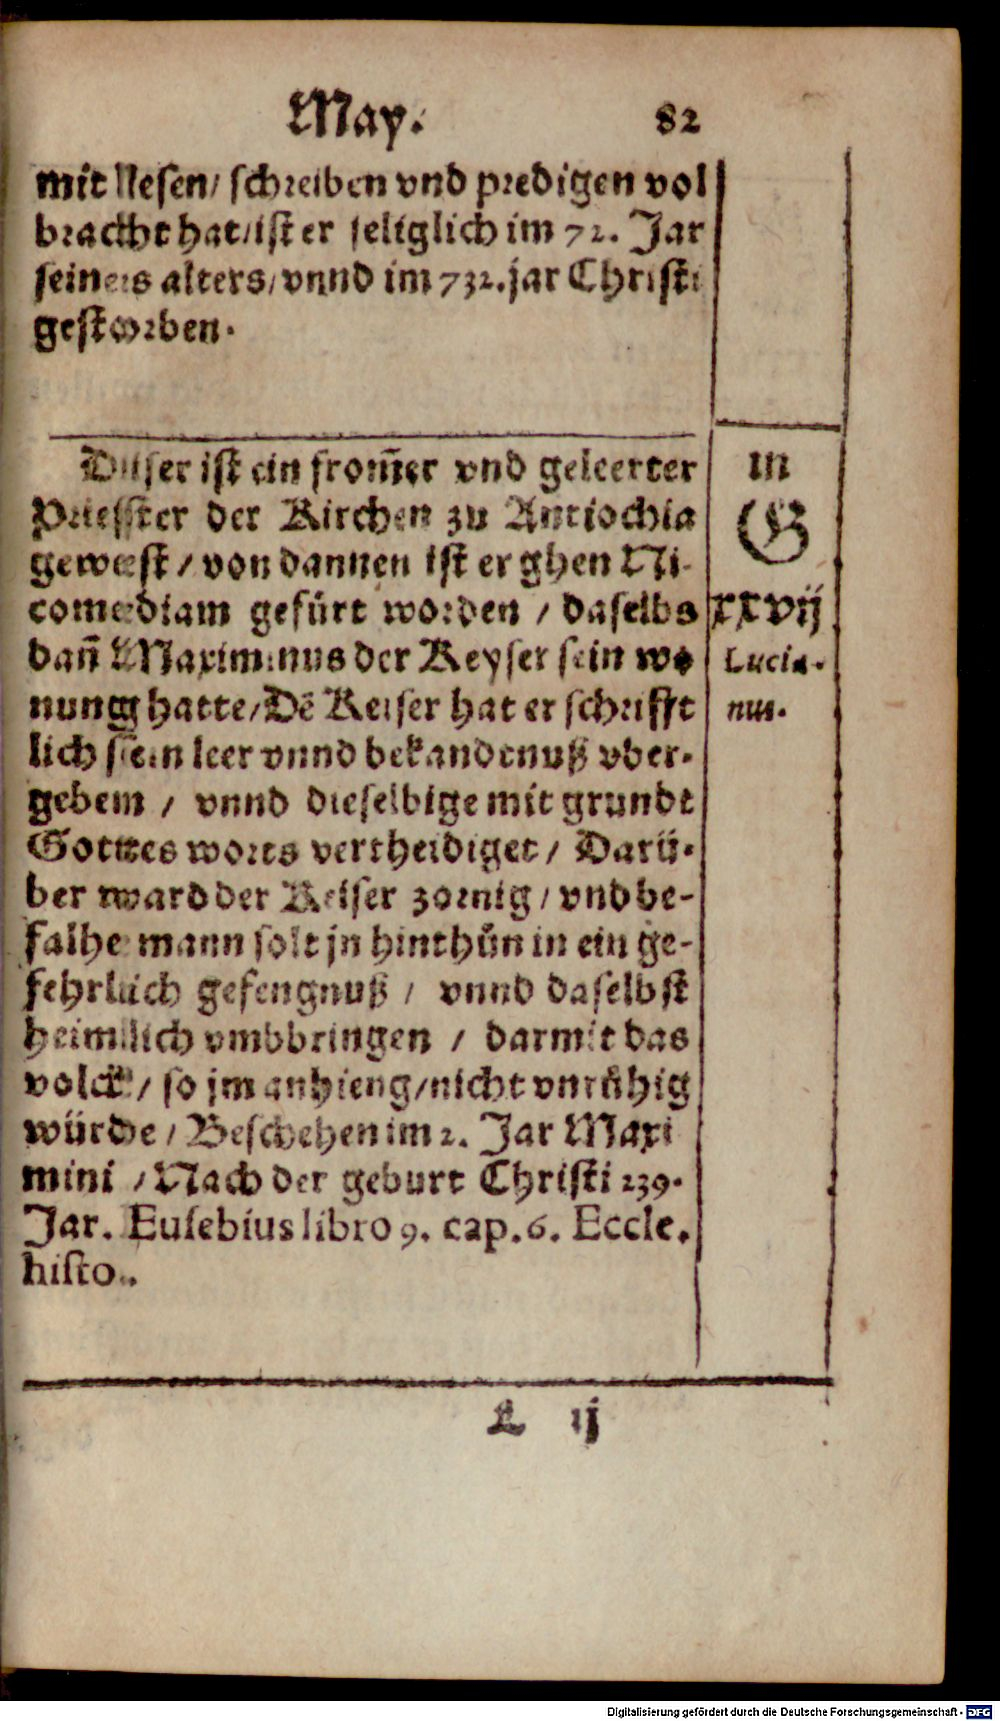 May. 82
mit lesen/ schreiben vnd predigen vol
bracht hat/ ist er seliglich im 72. Jar
seines alters/ vnnd im 732. jar Christi
gestorben.
Diser ist ein from̃er vnd geleerter
Priester der Kirchen zu Antiochia
gewest / von dannen ist er ghen Ni-
comediam gefürt worden / daselbs
dañ Maximinus der Keyser sein wo
nung hatte/ Dē Keiser hat er schrifft
lich sein leer vnnd bekandtnuß vber-
geben / vnnd dieselbige mit grundt
Gottes worts vertheidiget / Darü-
ber ward der Keiser zornig / vnd be-
falhe mann solt jn hinthůn in ein ge-
fehrlich gefengnuß / vnnd daselbst
heimlich vmbbringen / darmit das
volck / so jm anhieng/ nicht vnrůhig
würde / Beschehen im 2. Jar Maxi
mini / Nach der geburt Christi 239.
Jar. Eusebius libro 9. cap. 6. Eccle.
histo.
m
G
xxvij
Lucia-
nus.
L ij
Digitalisierung gefördert durch die Deutsche Forschungsgemeinschaft - DFG